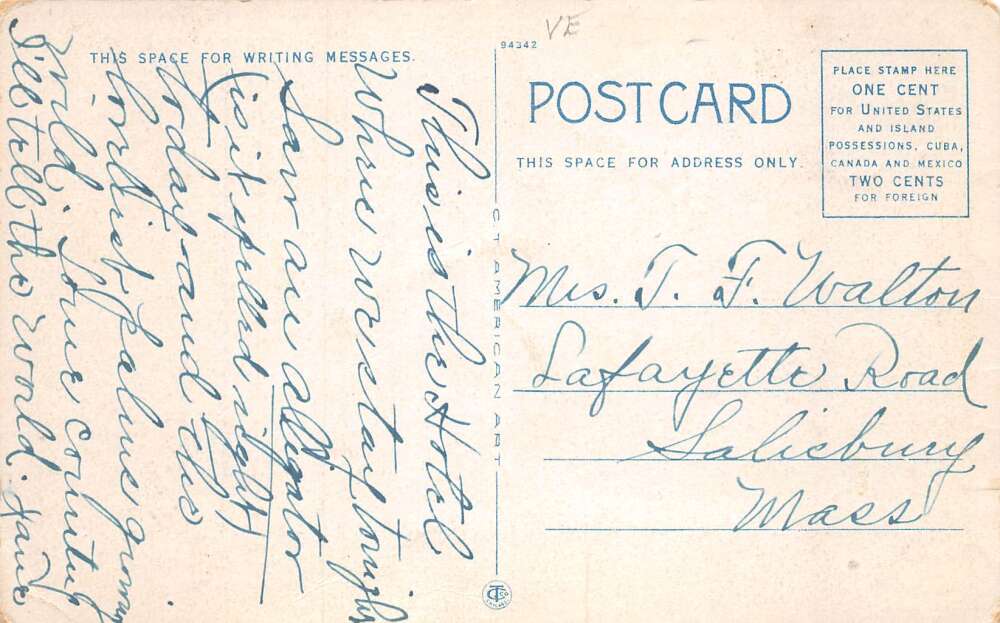 THIS SPACE FOR WRITING MESSAGES.
This is the Hotel
Where we stay tonight
Saw an alligator
(is it spelled right)
today - and the
lordist palms growing
wild, Some country
I'll tell the world.
VE
94342
POST CARD
THIS SPACE FOR ADDRESS ONLY.
PLACE STAMP HERE
ONE CENT
FOR UNITED STATES
AND ISLAND
POSSESSIONS, CUBA,
CANADA AND MEXICO
TWO CENTS
FOR FOREIGN
C T AMERICAN ART
Mrs. T. F. Walton
Lafayette Road
Salisbury
Mass